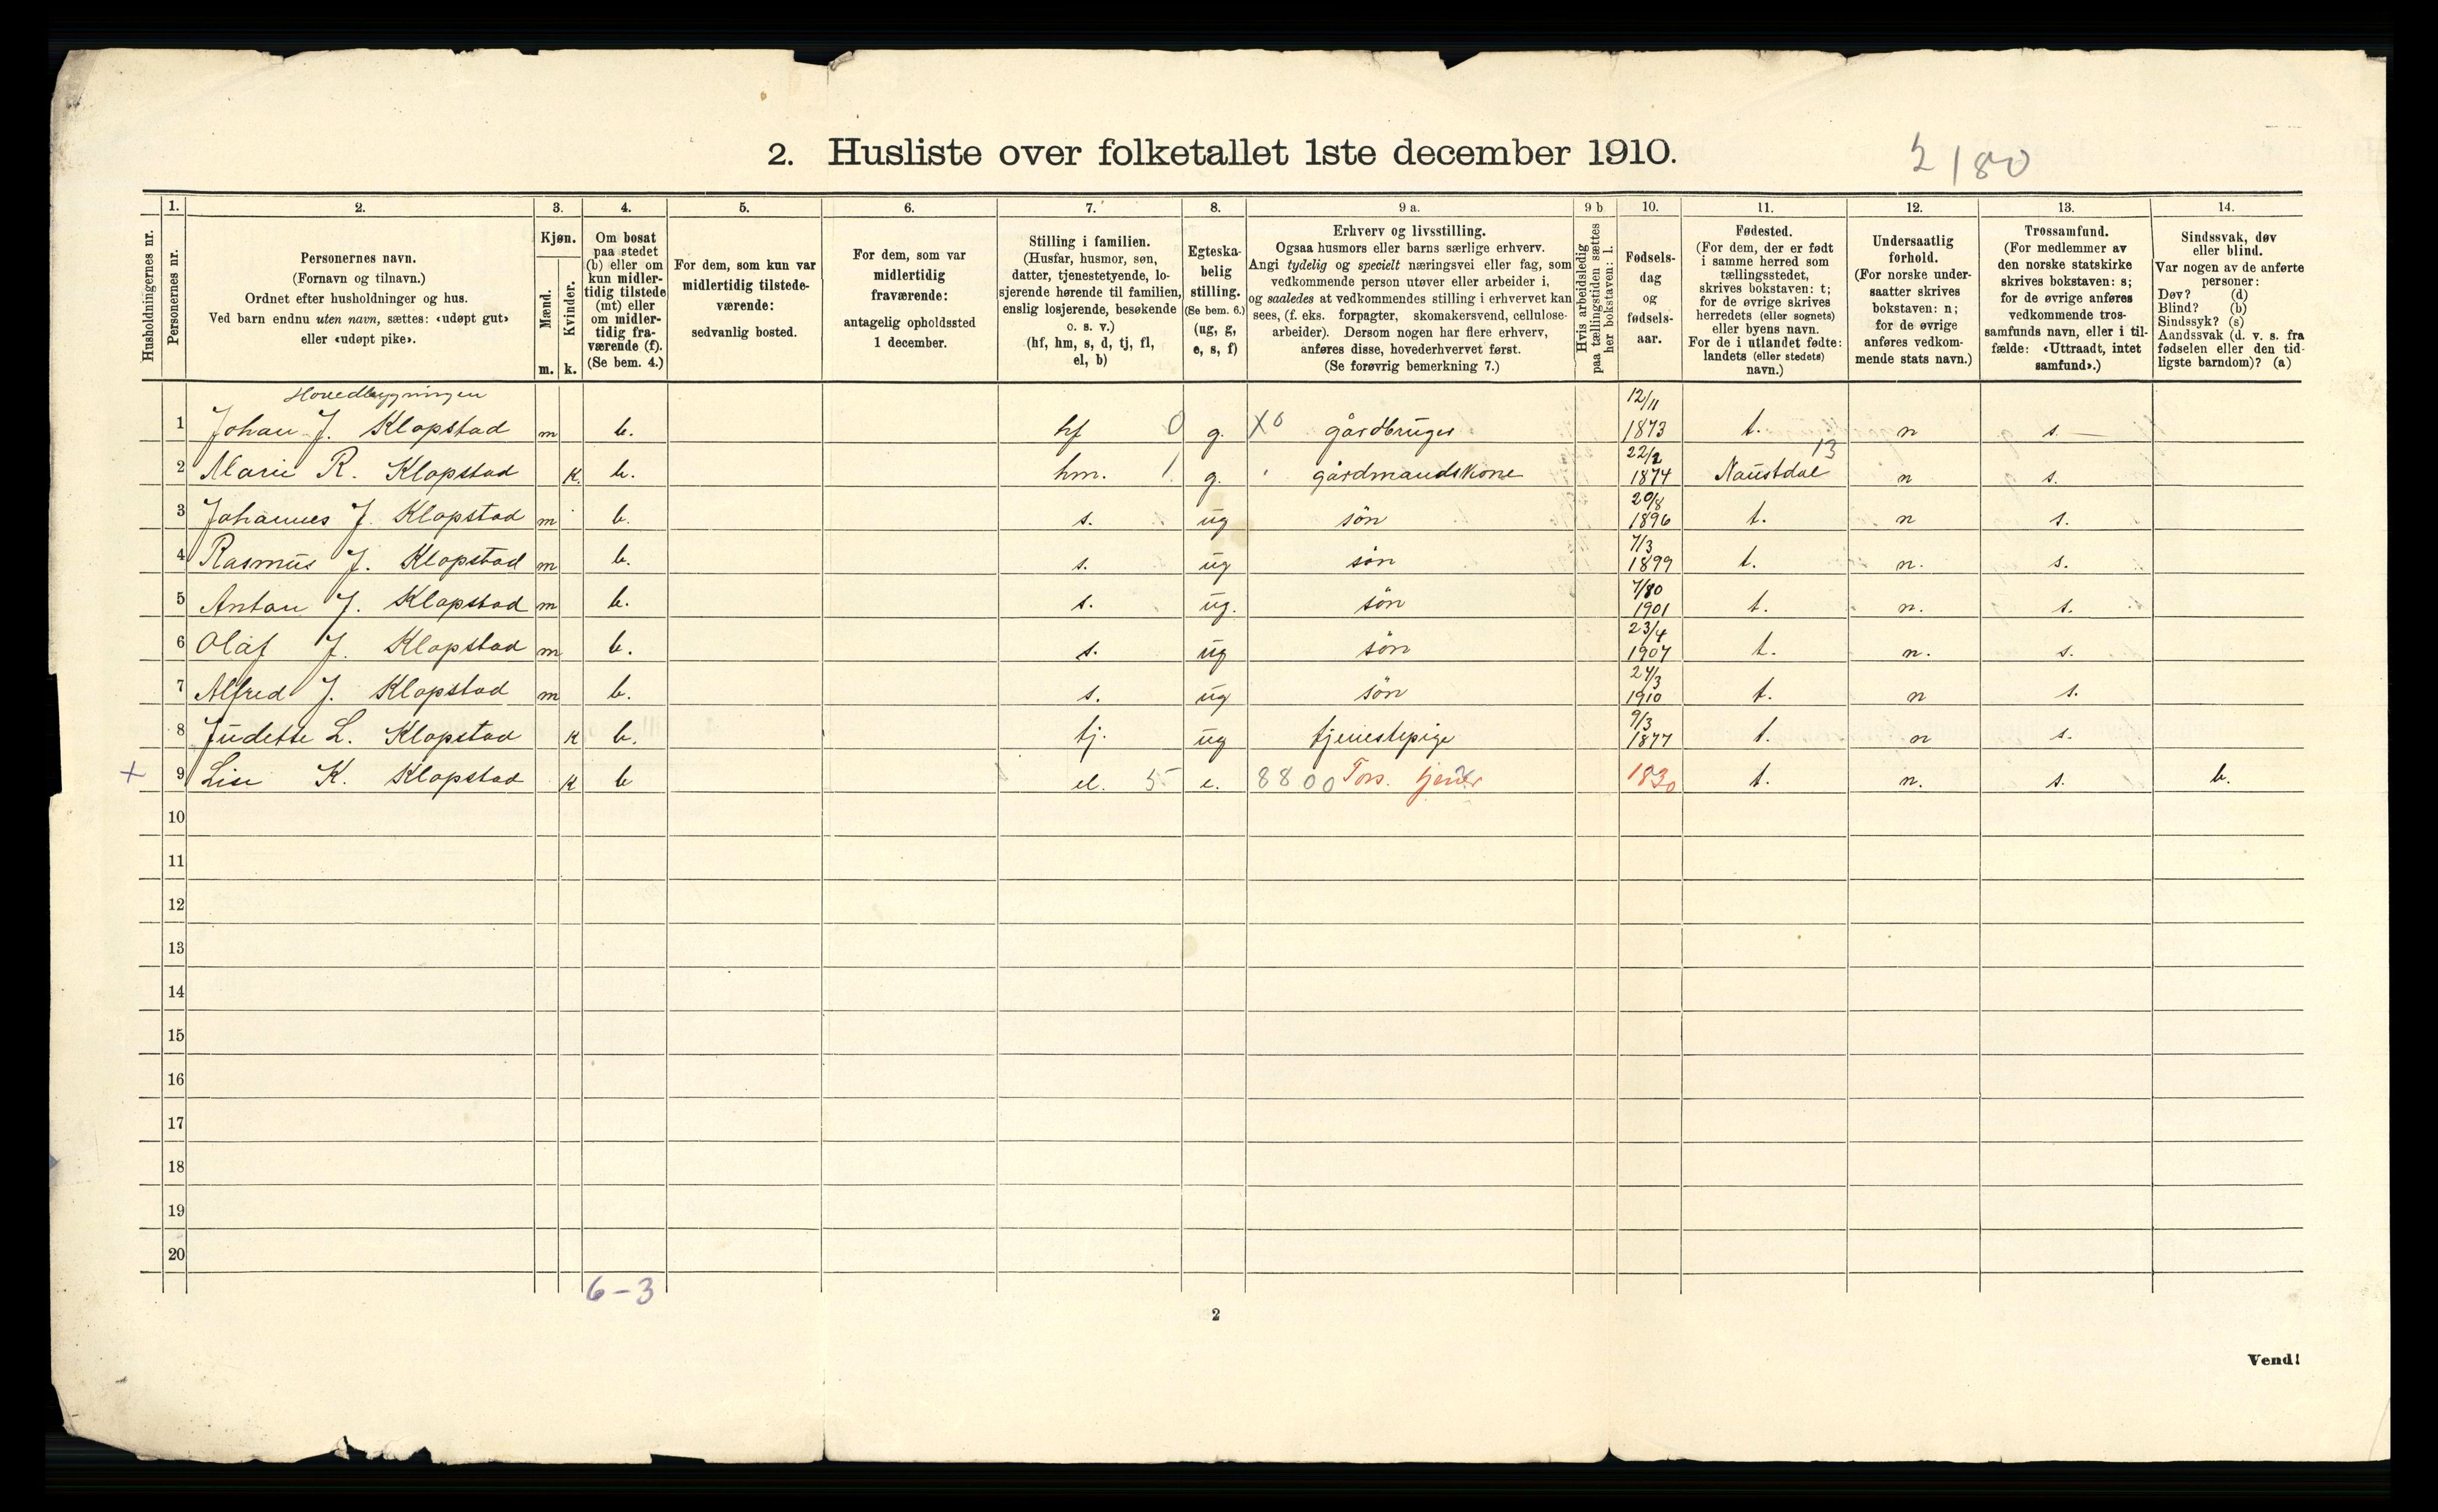 2. Husliste over folketallet 1ste december 1910.
2 | 80
Husholdningernes nr.
1.
Personernes nr.
2.
Personernes navn.
(Fornavn og tilnavn.)
Ordnet efter husholdninger og hus.
Ved barn endnu uten navn, sættes: «udøpt gut»
eller «udøpt pike».
3.
Kjøn.
Mænd.
m.
Kvinder.
k.
4.
Om bosat
paa stedet
(b) eller om
kun midler-
tidig tilstede
(mt) eller
om midler-
tidig fra-
værende (f).
(Se bem. 4.)
5.
For dem, som kun var
midlertidig tilstede-
værende:
sedvanlig bosted.
6.
For dem, som var
midlertidig
fraværende:
antagelig opholdssted
1 december.
7.
Stilling i familien.
(Husfar, husmor, søn,
datter, tjenestetyende, lo-
sjerende hørende til familien,
enslig losjerende, besøkende
o. s. v.)
(hf, hm, s, d, tj, fl,
el, b)
8.
Egteska-
belig
stilling.
(Se bem. 6.)
(ug, g,
e, s, f)
9 a.
Erhverv og livsstilling.
Ogsaa husmors eller barns særlige erhverv.
Angi tydelig og specielt næringsvei eller fag, som
vedkommende person utøver eller arbeider i,
og saaledes at vedkommendes stilling i erhvervet kan
sees, (f. eks. forpagter, skomakersvend, cellulose-
arbeider). Dersom nogen har flere erhverv,
anføres disse, hovederhvervet først.
(Se forøvrig bemerkning 7.)
9 b
Hvis arbeidsledig
paa tællingstiden sættes
her bokstaven: l.
10.
Fødsels-
dag
og
fødsels-
aar.
11.
Fødested.
(For dem, der er født
i samme herred som
tællingsstedet,
skrives bokstaven: t;
for de øvrige skrives
herredets (eller sognets)
eller byens navn.
For de i utlandet fødte:
landets (eller stedets)
navn.)
12.
Undersaatlig
forhold.
(For norske under-
saatter skrives
bokstaven: n;
for de øvrige
anføres vedkom-
mende stats navn.)
13.
Trossamfund.
(For medlemmer av
den norske statskirke
skrives bokstaven: s;
for de øvrige anføres
vedkommende tros-
samfunds navn, eller i til-
fælde: «Uttraadt, intet
samfund».)
14.
Sindssvak, døv
eller blind.
Var nogen av de anførte
personer:
Døv? (d)
Blind? (b)
Sindssyk? (s)
Aandssvak (d. v. s. fra
fødselen eller den tid-
ligste barndom)? (a)
Hovedbygningen
1 Johan J. Klopstad m b. hf 0 g. X0 gårdbruger 12/11 1873 t. n s.
2 Marie R. Klopstad k. b. hm. 1 g. gårdmandskone 22/2 1874 Naustdal 13 n s.
3 Johannes J. Klopstad m b. s. ug søn 20/8 1896 t. n s.
4 Rasmus J. Klopstad m b. s. ug søn 7/3 1899 t. n. s.
5 Anton J. Klopstad m b. s. ug. søn 1901 t. n. s.
6 Olaf J. Klopstad m b. s. ug søn 23/4 1907 t. n. s.
7 Alfred J. Klopstad m b. s. ug søn 24/3 1910 t. n s.
8 Judette L. Klopstad k b. tj. ug tjenestepige 9/3 1877 t. n s.
+ 9 Lise K. Klopstad k b el. 5 e. 8800 Fors. 1830 t. n. s. b.
10
11
12
13
14
15
16
17
18
19
20
6 - 3
2
Vend!